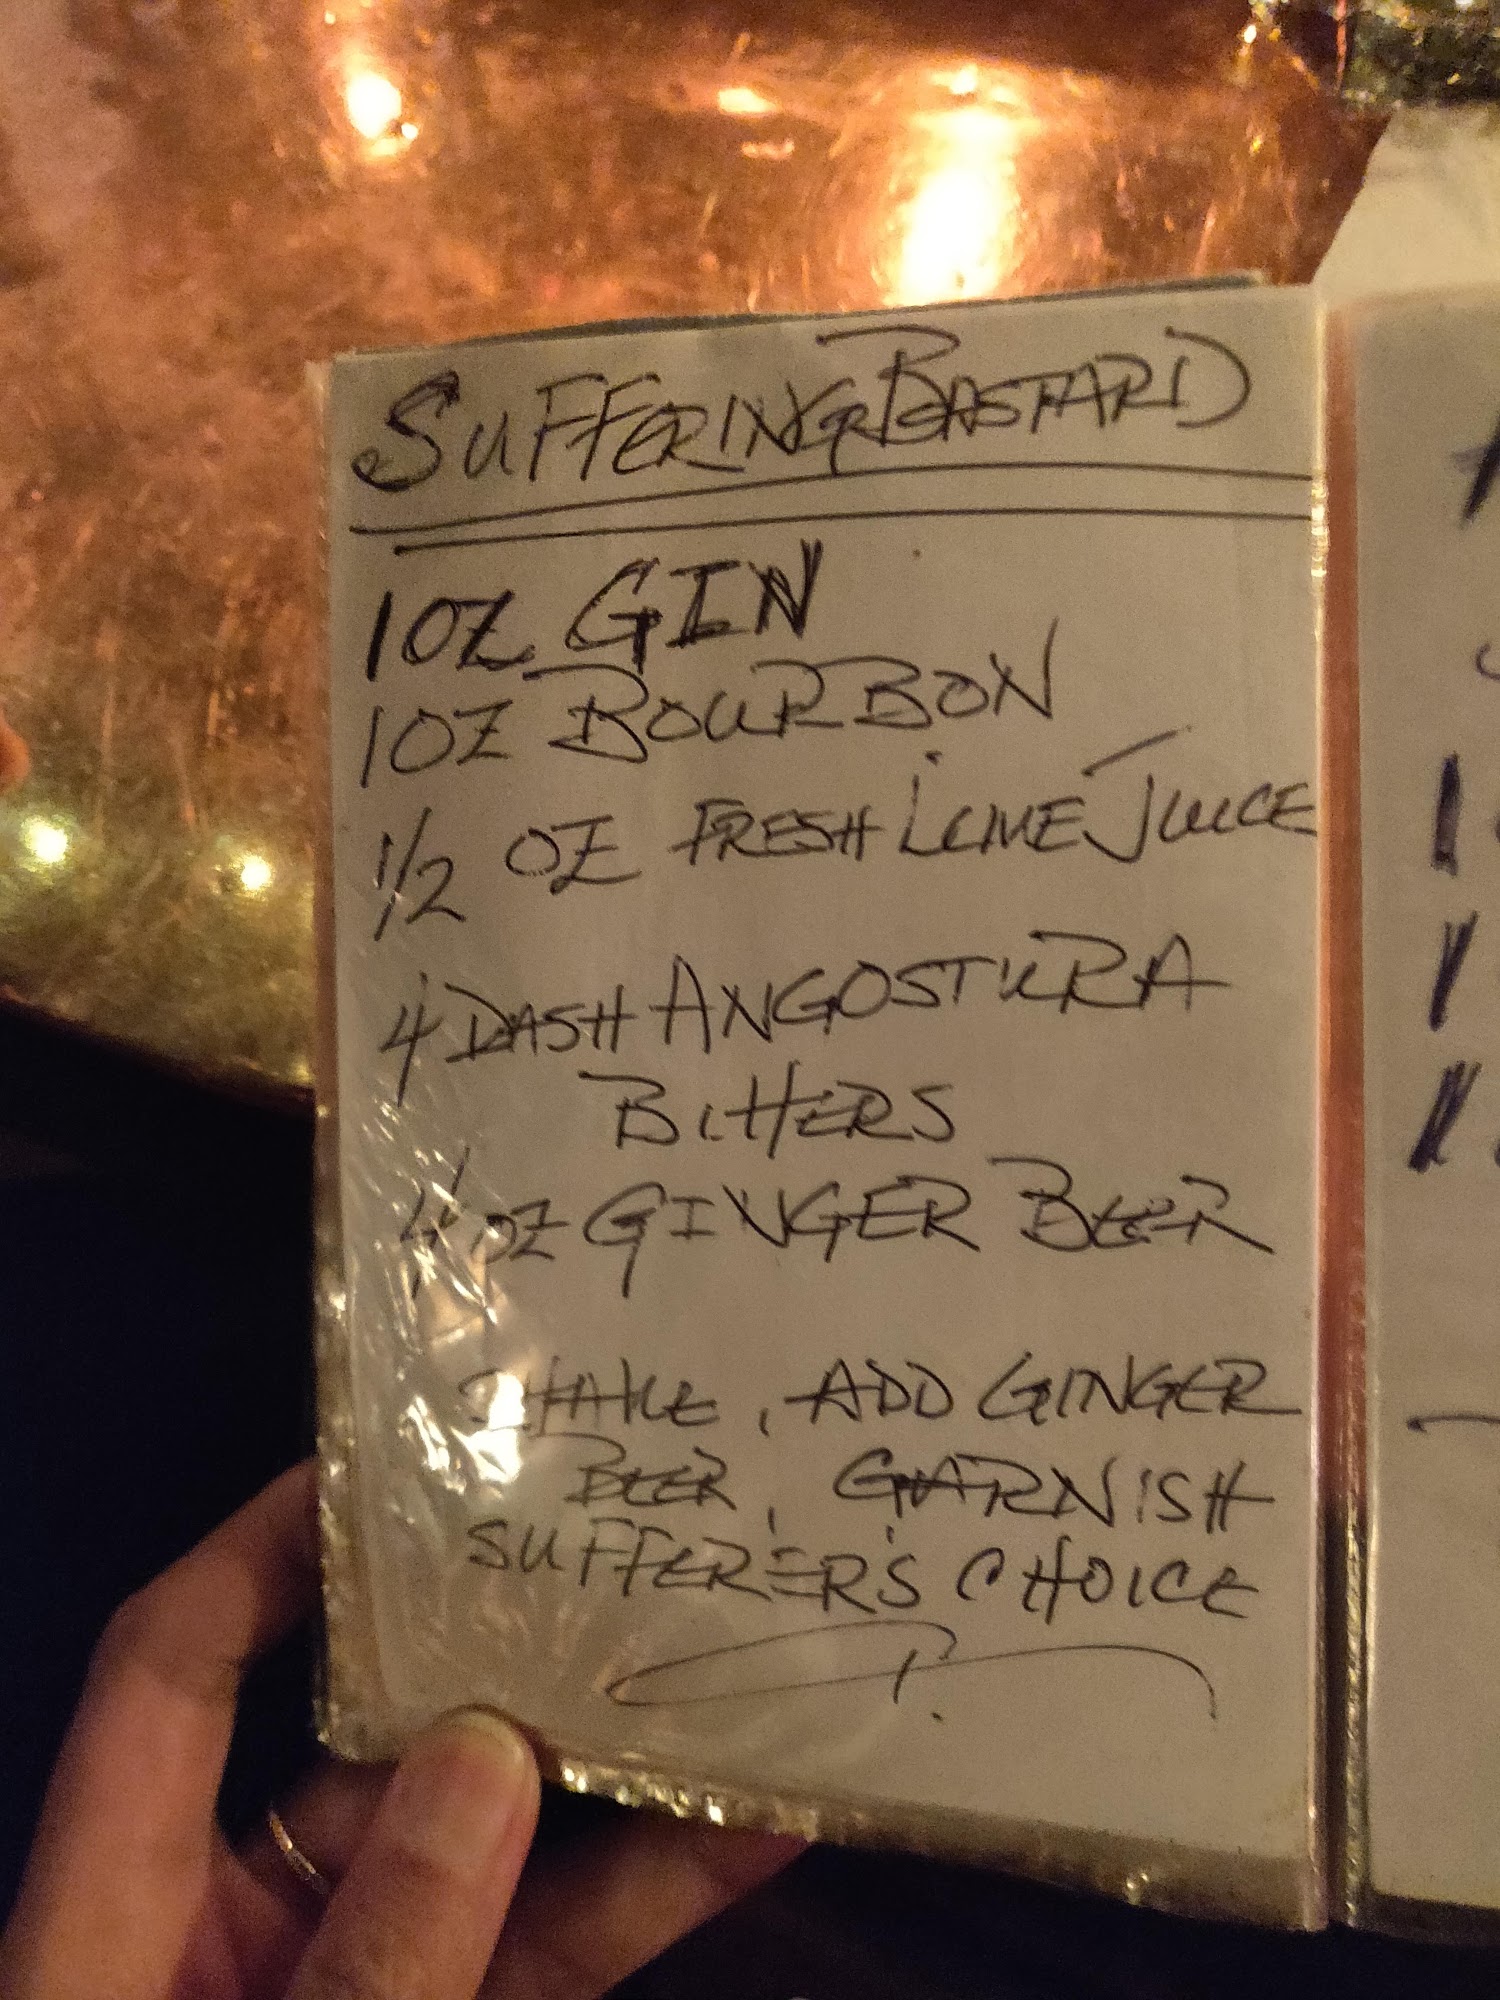 SUFFERING BASTARD
1 OZ GIN
1 OZ BOURBON
1/2 OZ FRESH LIME JUICE
4 DASH ANGOSTURA
BITTERS
4 OZ GINGER BEER
SHAKE, ADD GINGER
BEER, GARNISH
SUFFERER'S CHOICE